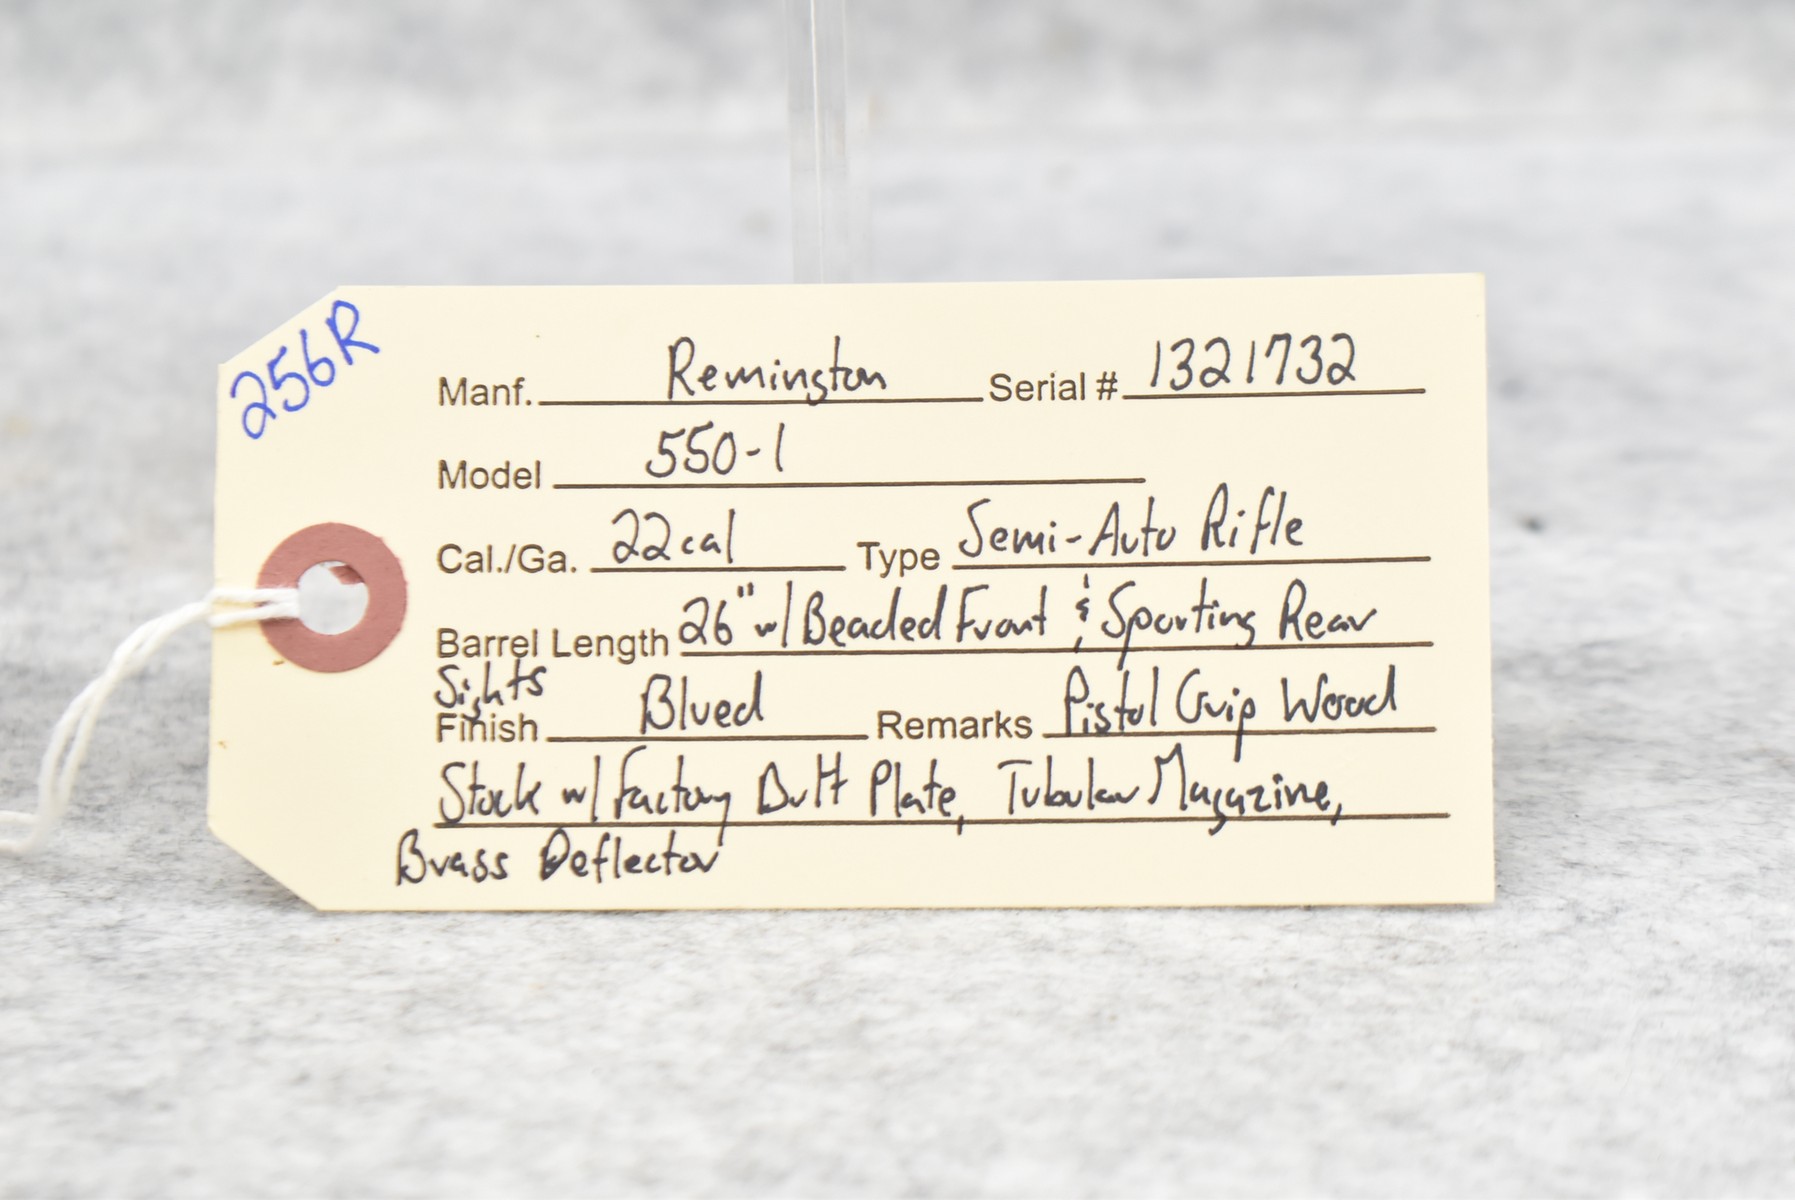 256R
Manf. Remington Serial # 1321732
Model 550-1
Cal./Ga. 22cal Type Semi-Auto Rifle
Barrel Length 26" w/ Beaded Front & Sporting Rear
Sights
Finish Blued Remarks Pistol Grip Wood
Stock w/ Factory Butt Plate, Tubular Magazine,
Brass Deflector